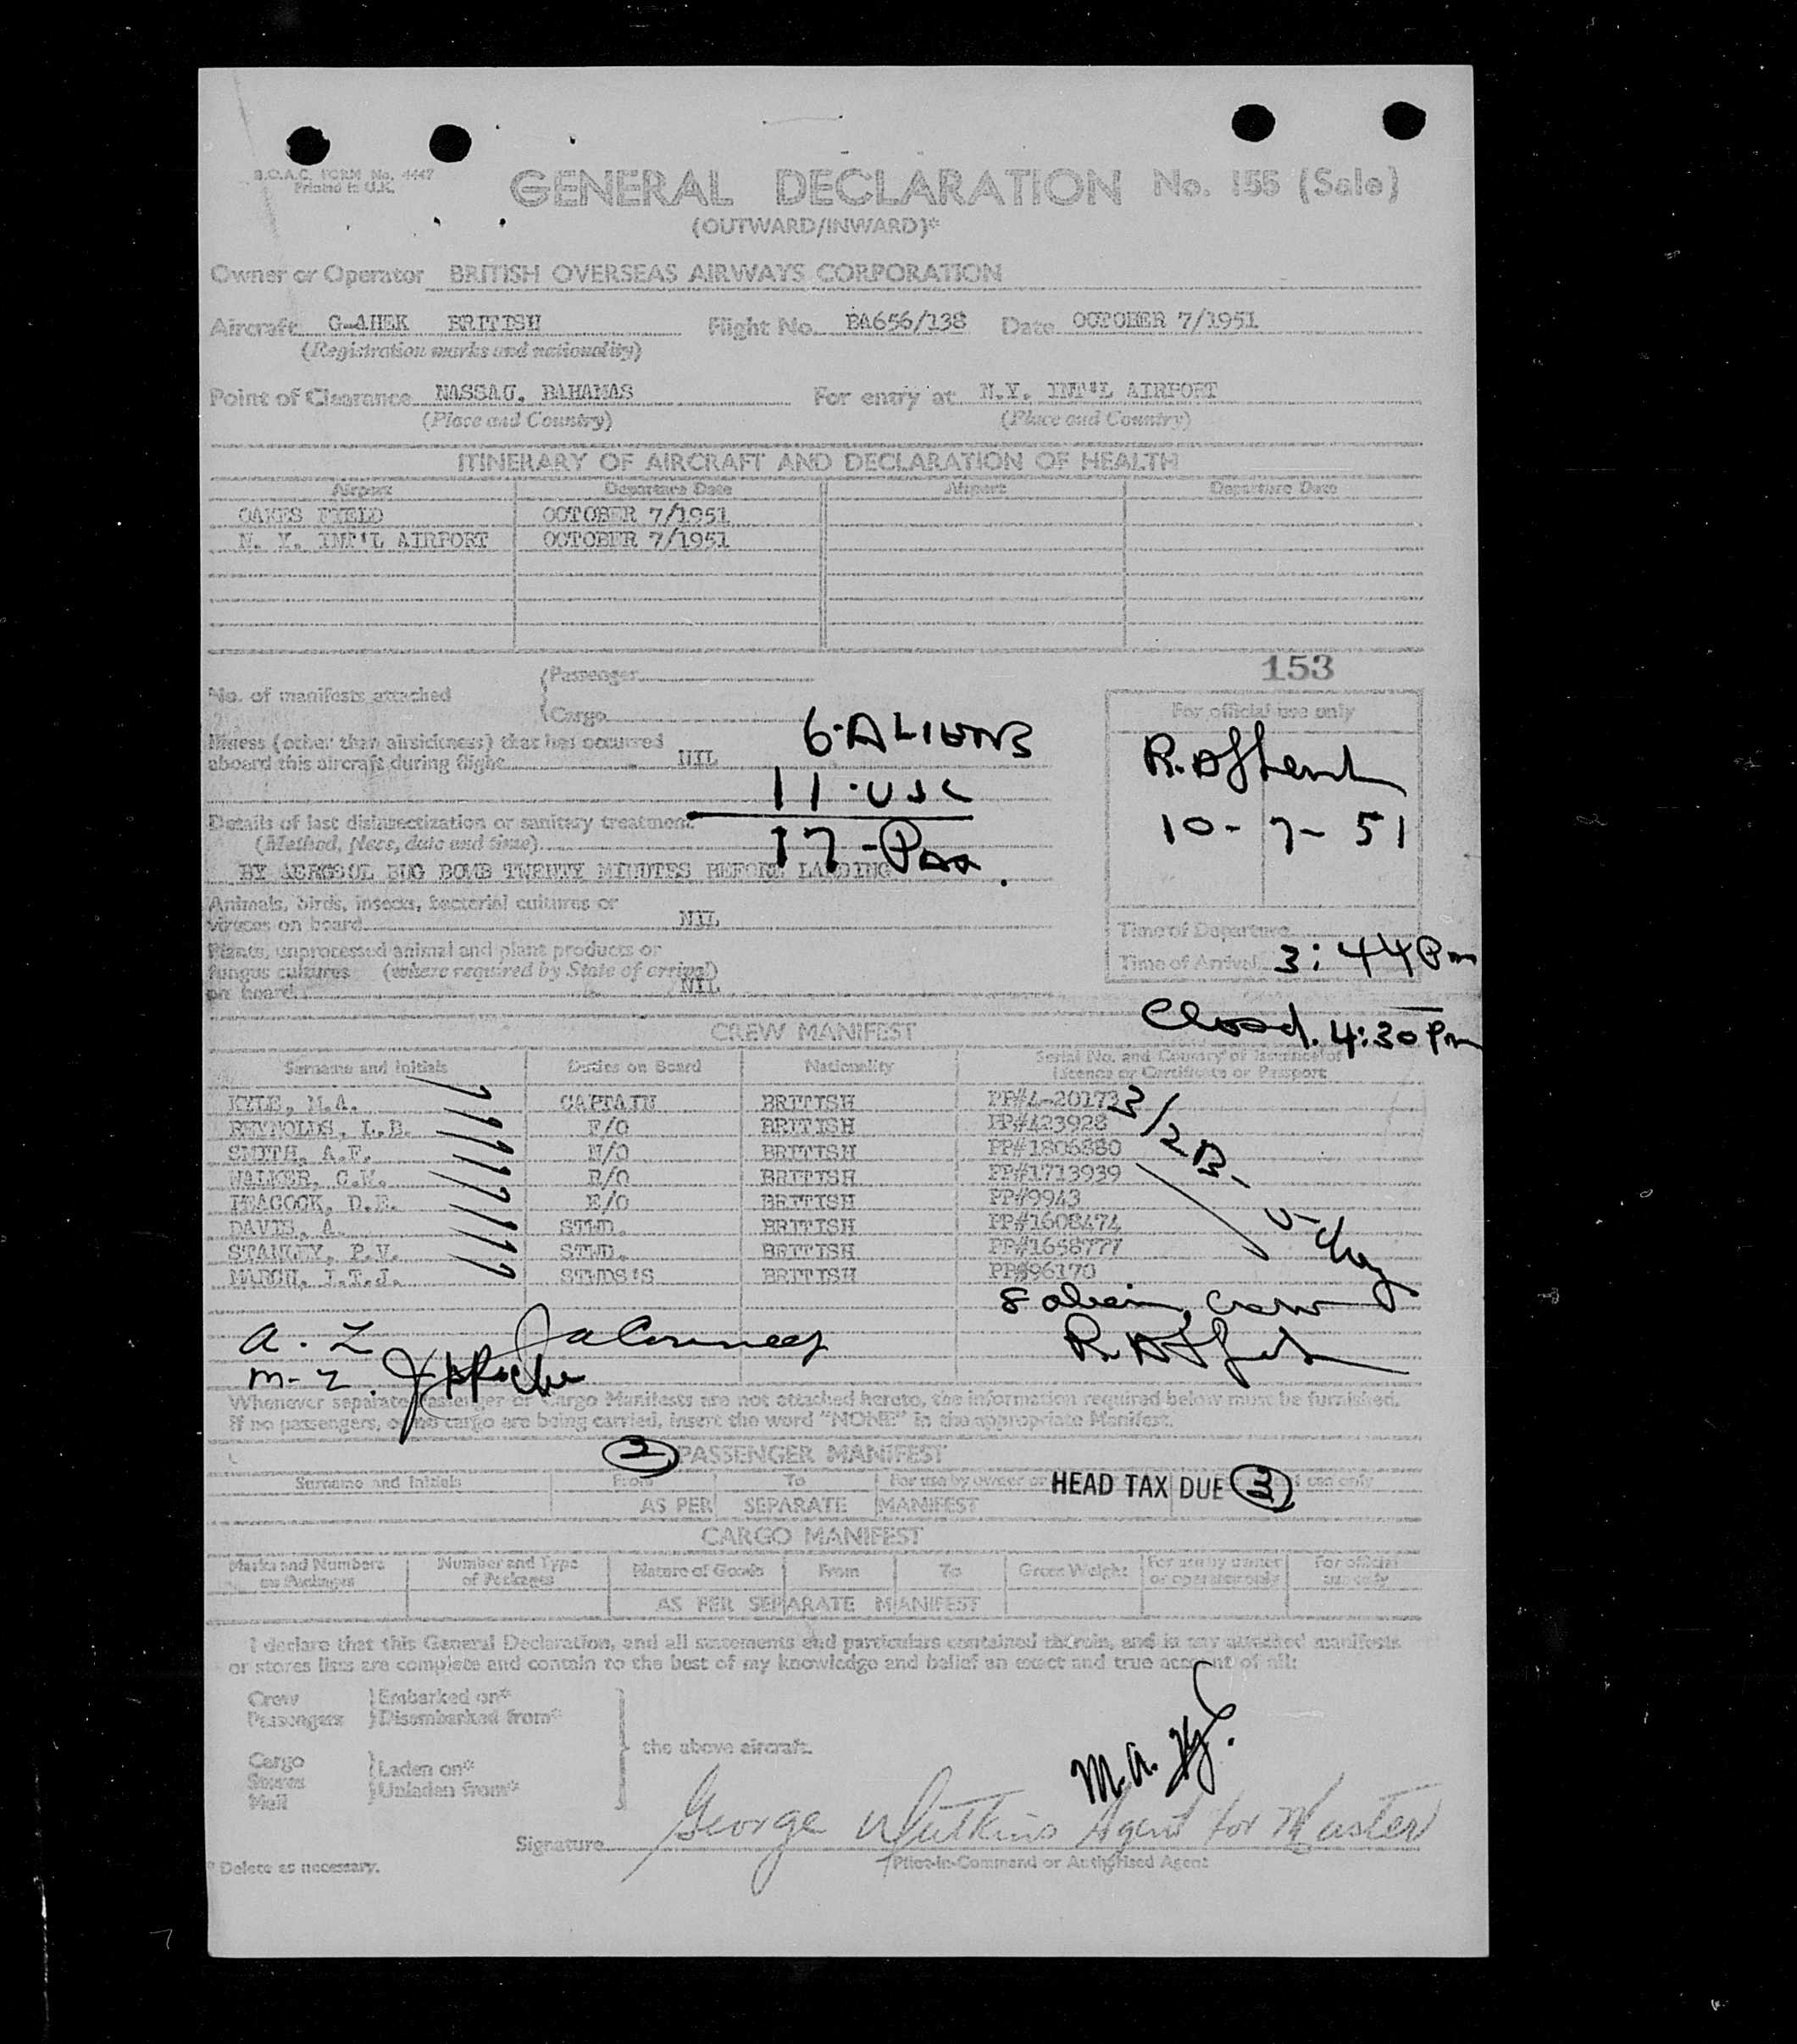 B.O.A.C. FORM No. 4447
Printed in U.K.
GENERAL DECLARATION No. 155 (Sale)
(OUTWARD/INWARD)*
Owner or Operator BRITISH OVERSEAS AIRWAYS CORPORATION
Aircraft G-AHEK BRITISH Flight No. BA656/138 Date OCTOBER 7/1951
(Registration marks and nationality)
Point of Clearance NASSAU, BAHAMAS For entry at N.Y. INT'L AIRPORT
(Place and Country) (Place and Country)
ITINERARY OF AIRCRAFT AND DECLARATION OF HEALTH
Airport Departure Date Airport Departure Date
OAKES FIELD OCTOBER 7/1951
N. Y. INT'L AIRPORT OCTOBER 7/1951
153
No. of manifests attached
Passenger
Cargo
For official use only
6-ALIENS
Illness (other than airsickness) that has occurred
aboard this aircraft during flight NIL
11-USC
10-7-51
Details of last disinsectization or sanitary treatment
(Method, place, date and time)
17-Pax.
BY AEROSOL BUG BOMB TWENTY MINUTES BEFORE LANDING
Animals, birds, insects, bacterial cultures or
viruses on board NIL
Time of Departure
Plants, unprocessed animal and plant products or
fungus cultures (where required by State of arrival)
on board NIL
Time of Arrival 3:44 Pm
Closed. 4:30 Pm
CREW MANIFEST
Surname and Initials Duties on Board Nationality Serial No. and Country of Issuance of
Licence or Certificate or Passport
KYLE, M.A. CAPTAIN BRITISH PP#L-20173
REYNOLDS, L.B. F/O BRITISH PP#423928
SMITH, A.F. N/O BRITISH PP#1806880
WALKER, G.W. R/O BRITISH PP#1713939
PEACOCK, D.E. E/O BRITISH PP#9943
DAVIS, A. STWD. BRITISH PP#1608474
STANLEY, P.V. STWD. BRITISH PP#1658777
MARCH, I.T.J. STWDS'S BRITISH PP#96170
3/2 B-
8 alien crew
Whenever separate Passenger or Cargo Manifests are not attached hereto, the information required below must be furnished.
If no passengers, or no cargo are being carried, insert the word "NONE" in the appropriate Manifest.
PASSENGER MANIFEST
Surname and Initials From To For use by owner or use only
HEAD TAX DUE 3
AS PER SEPARATE MANIFEST
CARGO MANIFEST
Marks and Numbers on Packages Number and Type of Packages Nature of Goods From To Gross Weight For use by owner or operator only For official use only
AS PER SEPARATE MANIFEST
I declare that this General Declaration, and all statements and particulars contained therein, and in any attached manifests
or stores lists are complete and contain to the best of my knowledge and belief an exact and true account of all:
Crew
Passengers
Embarked on*
Disembarked from*
Cargo
Stores
Mail
Laden on*
Unladen from*
the above aircraft.
Signature George Watkins Agent for Master
Pilot-in-Command or Authorised Agent
* Delete as necessary.